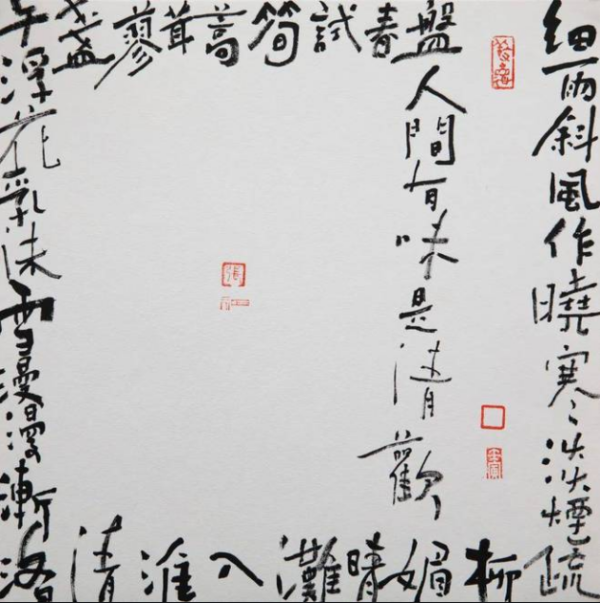 細雨斜風作曉寒淡煙疏
柳媚晴灘入淮清
洛漸漫漫雪沫乳花浮午
盞蓼茸蒿筍試春盤
人間有味是清歡